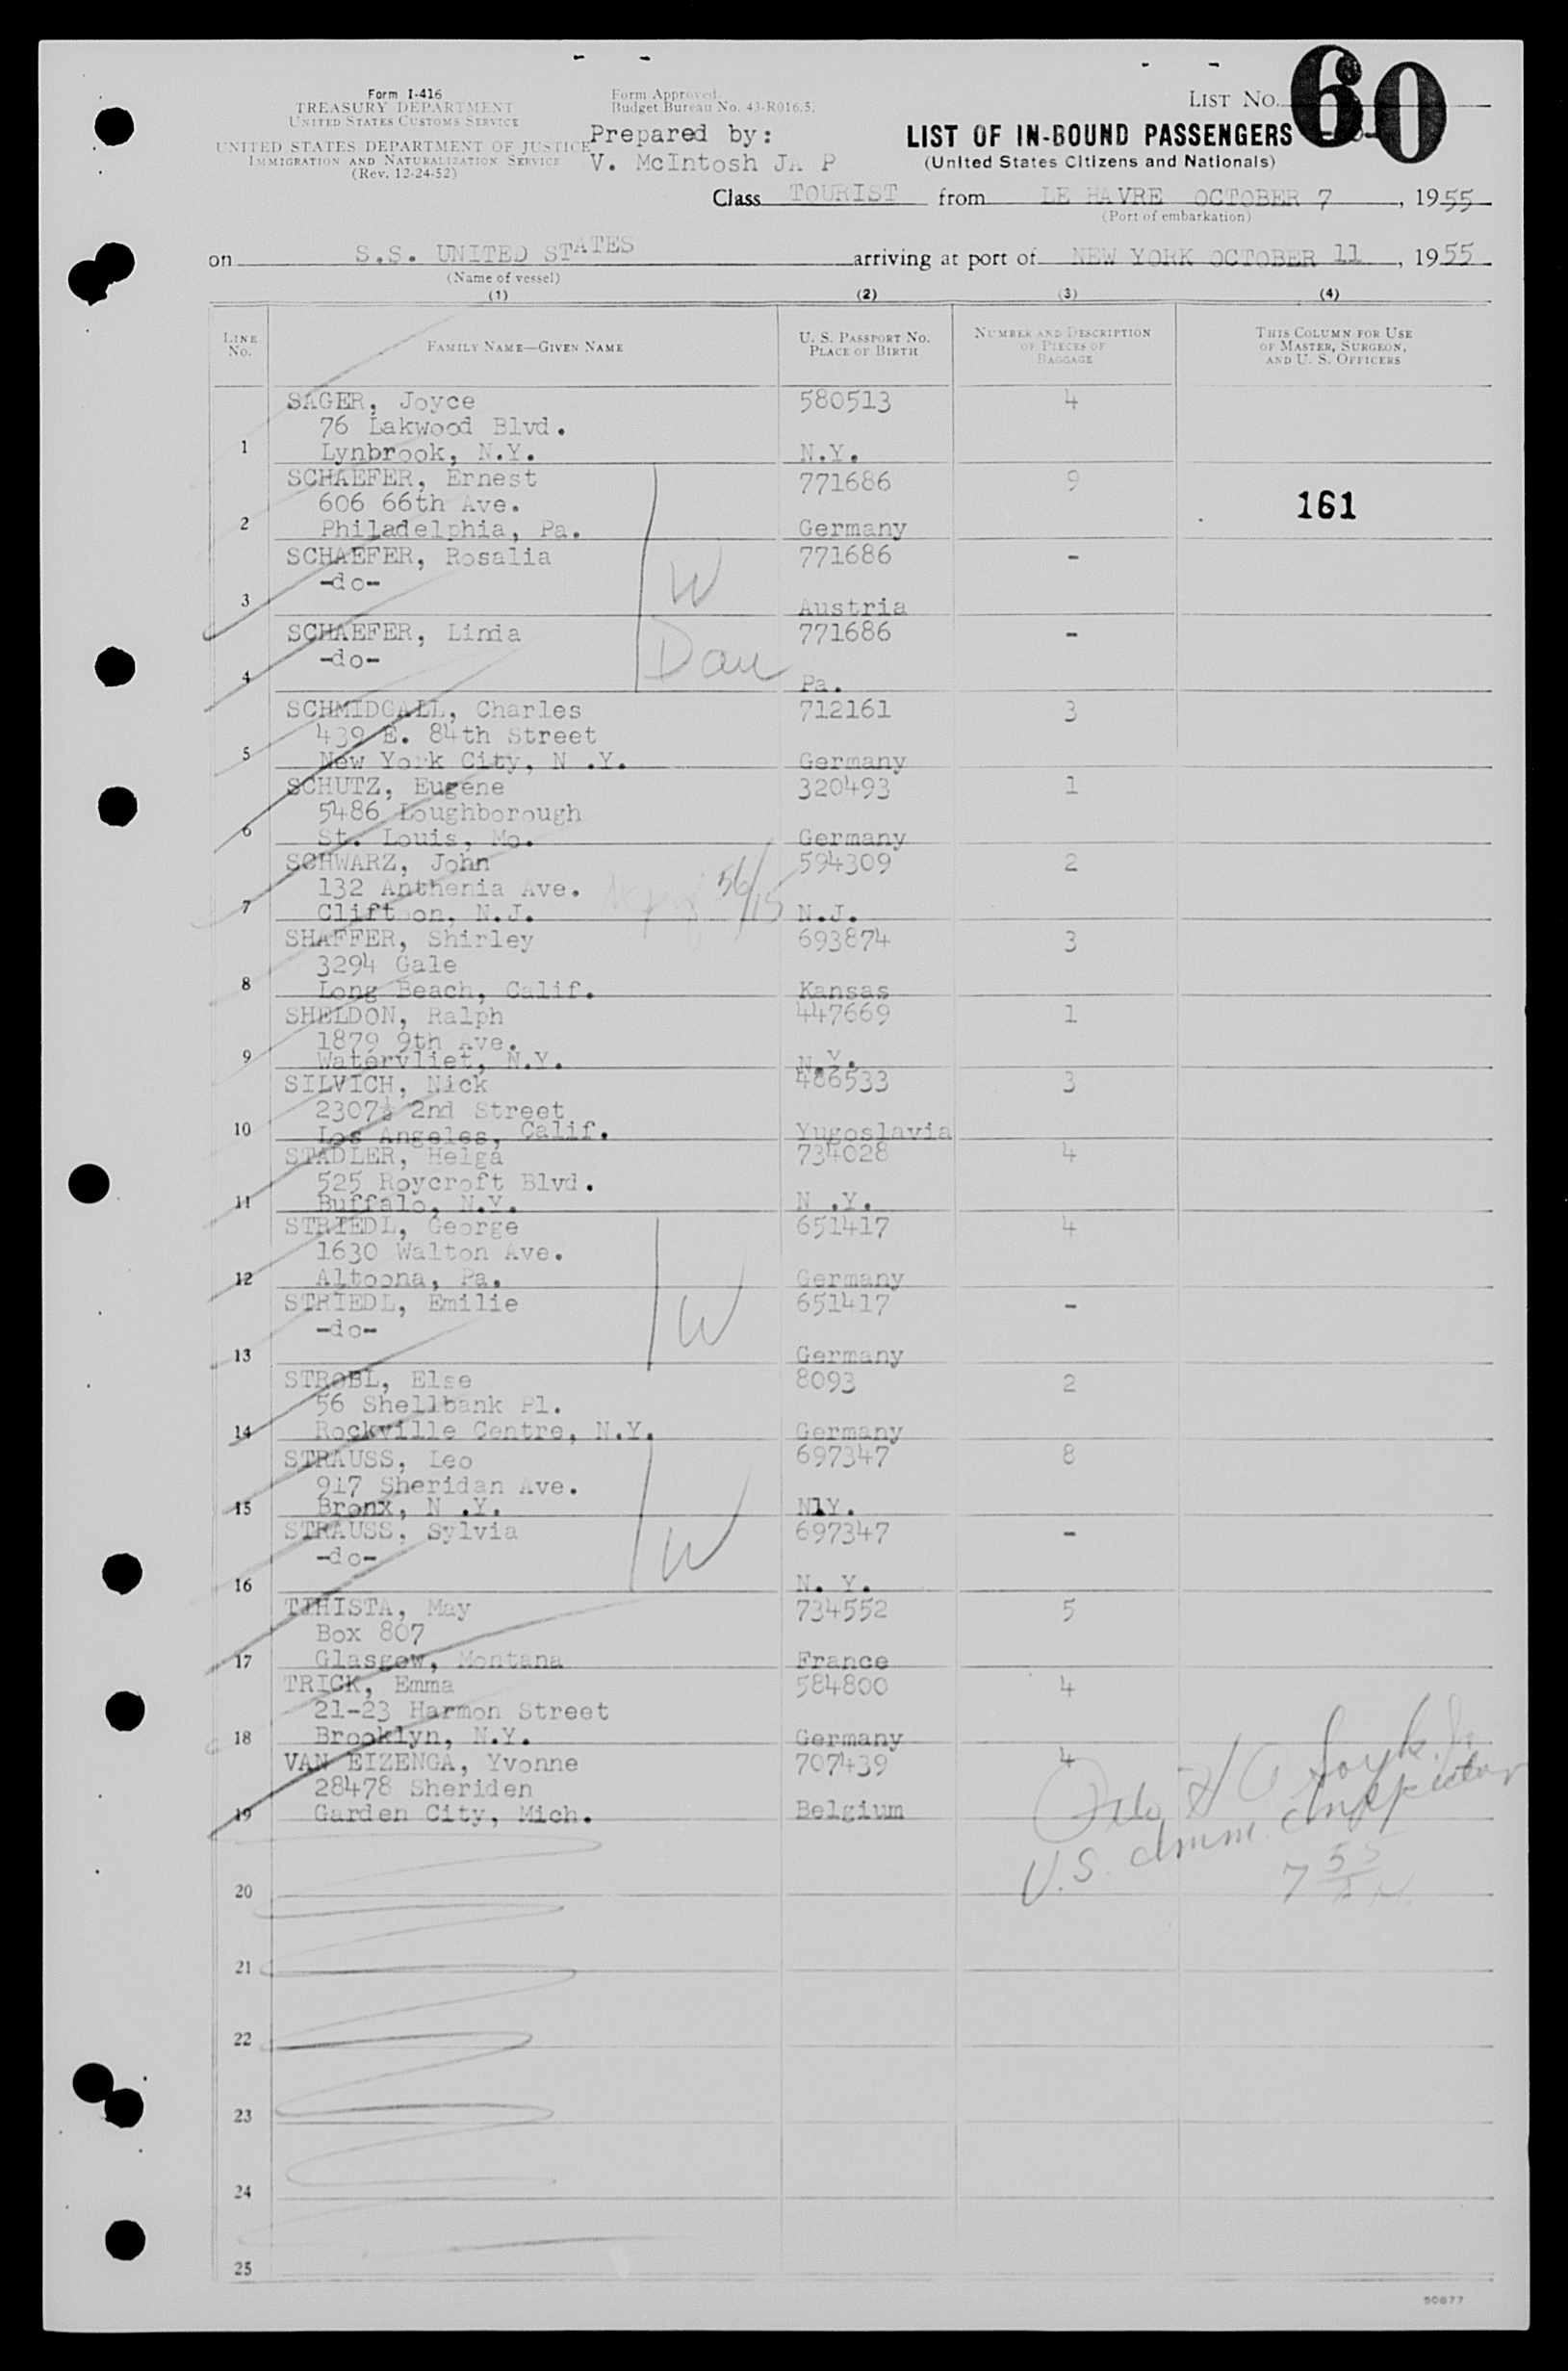 Form I-416
TREASURY DEPARTMENT
UNITED STATES CUSTOMS SERVICE
UNITED STATES DEPARTMENT OF JUSTICE
IMMIGRATION AND NATURALIZATION SERVICE
(Rev. 12-24-52)
Form Approved.
Budget Bureau No. 43-R016.5.
Prepared by:
V. McIntosh JA P
LIST NO. 60
LIST OF IN-BOUND PASSENGERS
(United States Citizens and Nationals)
Class TOURIST from LE HAVRE OCTOBER 7, 1955
(Port of embarkation)
on S.S. UNITED STATES arriving at port of NEW YORK OCTOBER 11, 1955
(Name of vessel)
(1) (2) (3) (4)
LINE NO. FAMILY NAME—GIVEN NAME U. S. PASSPORT NO. PLACE OF BIRTH NUMBER AND DESCRIPTION OF PIECES OF BAGGAGE THIS COLUMN FOR USE OF MASTER, SURGEON, AND U. S. OFFICERS
SAGER, Joyce 580513 4
76 Lakwood Blvd.
1 Lynbrook, N.Y. N.Y.
SCHAEFER, Ernest 771686 9
606 66th Ave. 161
2 Philadelphia, Pa. Germany
SCHAEFER, Rosalia 771686 -
-do- W
3 Austria
SCHAEFER, Linda 771686 -
-do- Dau
4 Pa.
SCHMIDGALL, Charles 712161 3
439 E. 84th Street
5 New York City, N .Y. Germany
SCHUTZ, Eugene 320493 1
5486 Loughborough
6 St. Louis, Mo. Germany
SCHWARZ, John 594309 2
132 Anthenia Ave. 56/15
7 Clift on, N.J. N.J.
SHAFFER, Shirley 693874 3
3294 Gale
8 Long Beach, Calif. Kansas
SHELDON, Ralph 447669 1
1879 9th Ave.
9 Watervliet, N.Y. N.Y.
SILVICH, Nick 486533 3
2307½ 2nd Street
10 Los Angeles, Calif. Yugoslavia
STADLER, Helga 734028 4
525 Roycroft Blvd.
11 Buffalo, N.Y. N .Y.
STRIEDL, George 651417 4
1630 Walton Ave.
12 Altoona, Pa. Germany
STRIEDL, Emilie 651417 -
-do- W
13 Germany
STROBL, Else 8093 2
56 Shellbank Pl.
14 Rockville Centre, N.Y. Germany
STRAUSS, Leo 697347 8
917 Sheridan Ave.
15 Bronx, N .Y. N1Y.
STRAUSS, Sylvia 697347 -
-do- W
16 N. Y.
TJHISTA, May 734552 5
Box 807
17 Glasgow, Montana France
TRICK, Emma 584800 4
21-23 Harmon Street
18 Brooklyn, N.Y. Germany
VAN EIZENGA, Yvonne 707439 4
28478 Sheriden
19 Garden City, Mich. Belgium
U.S. Imm. Inspector
20
21
22
23
24
25
50877